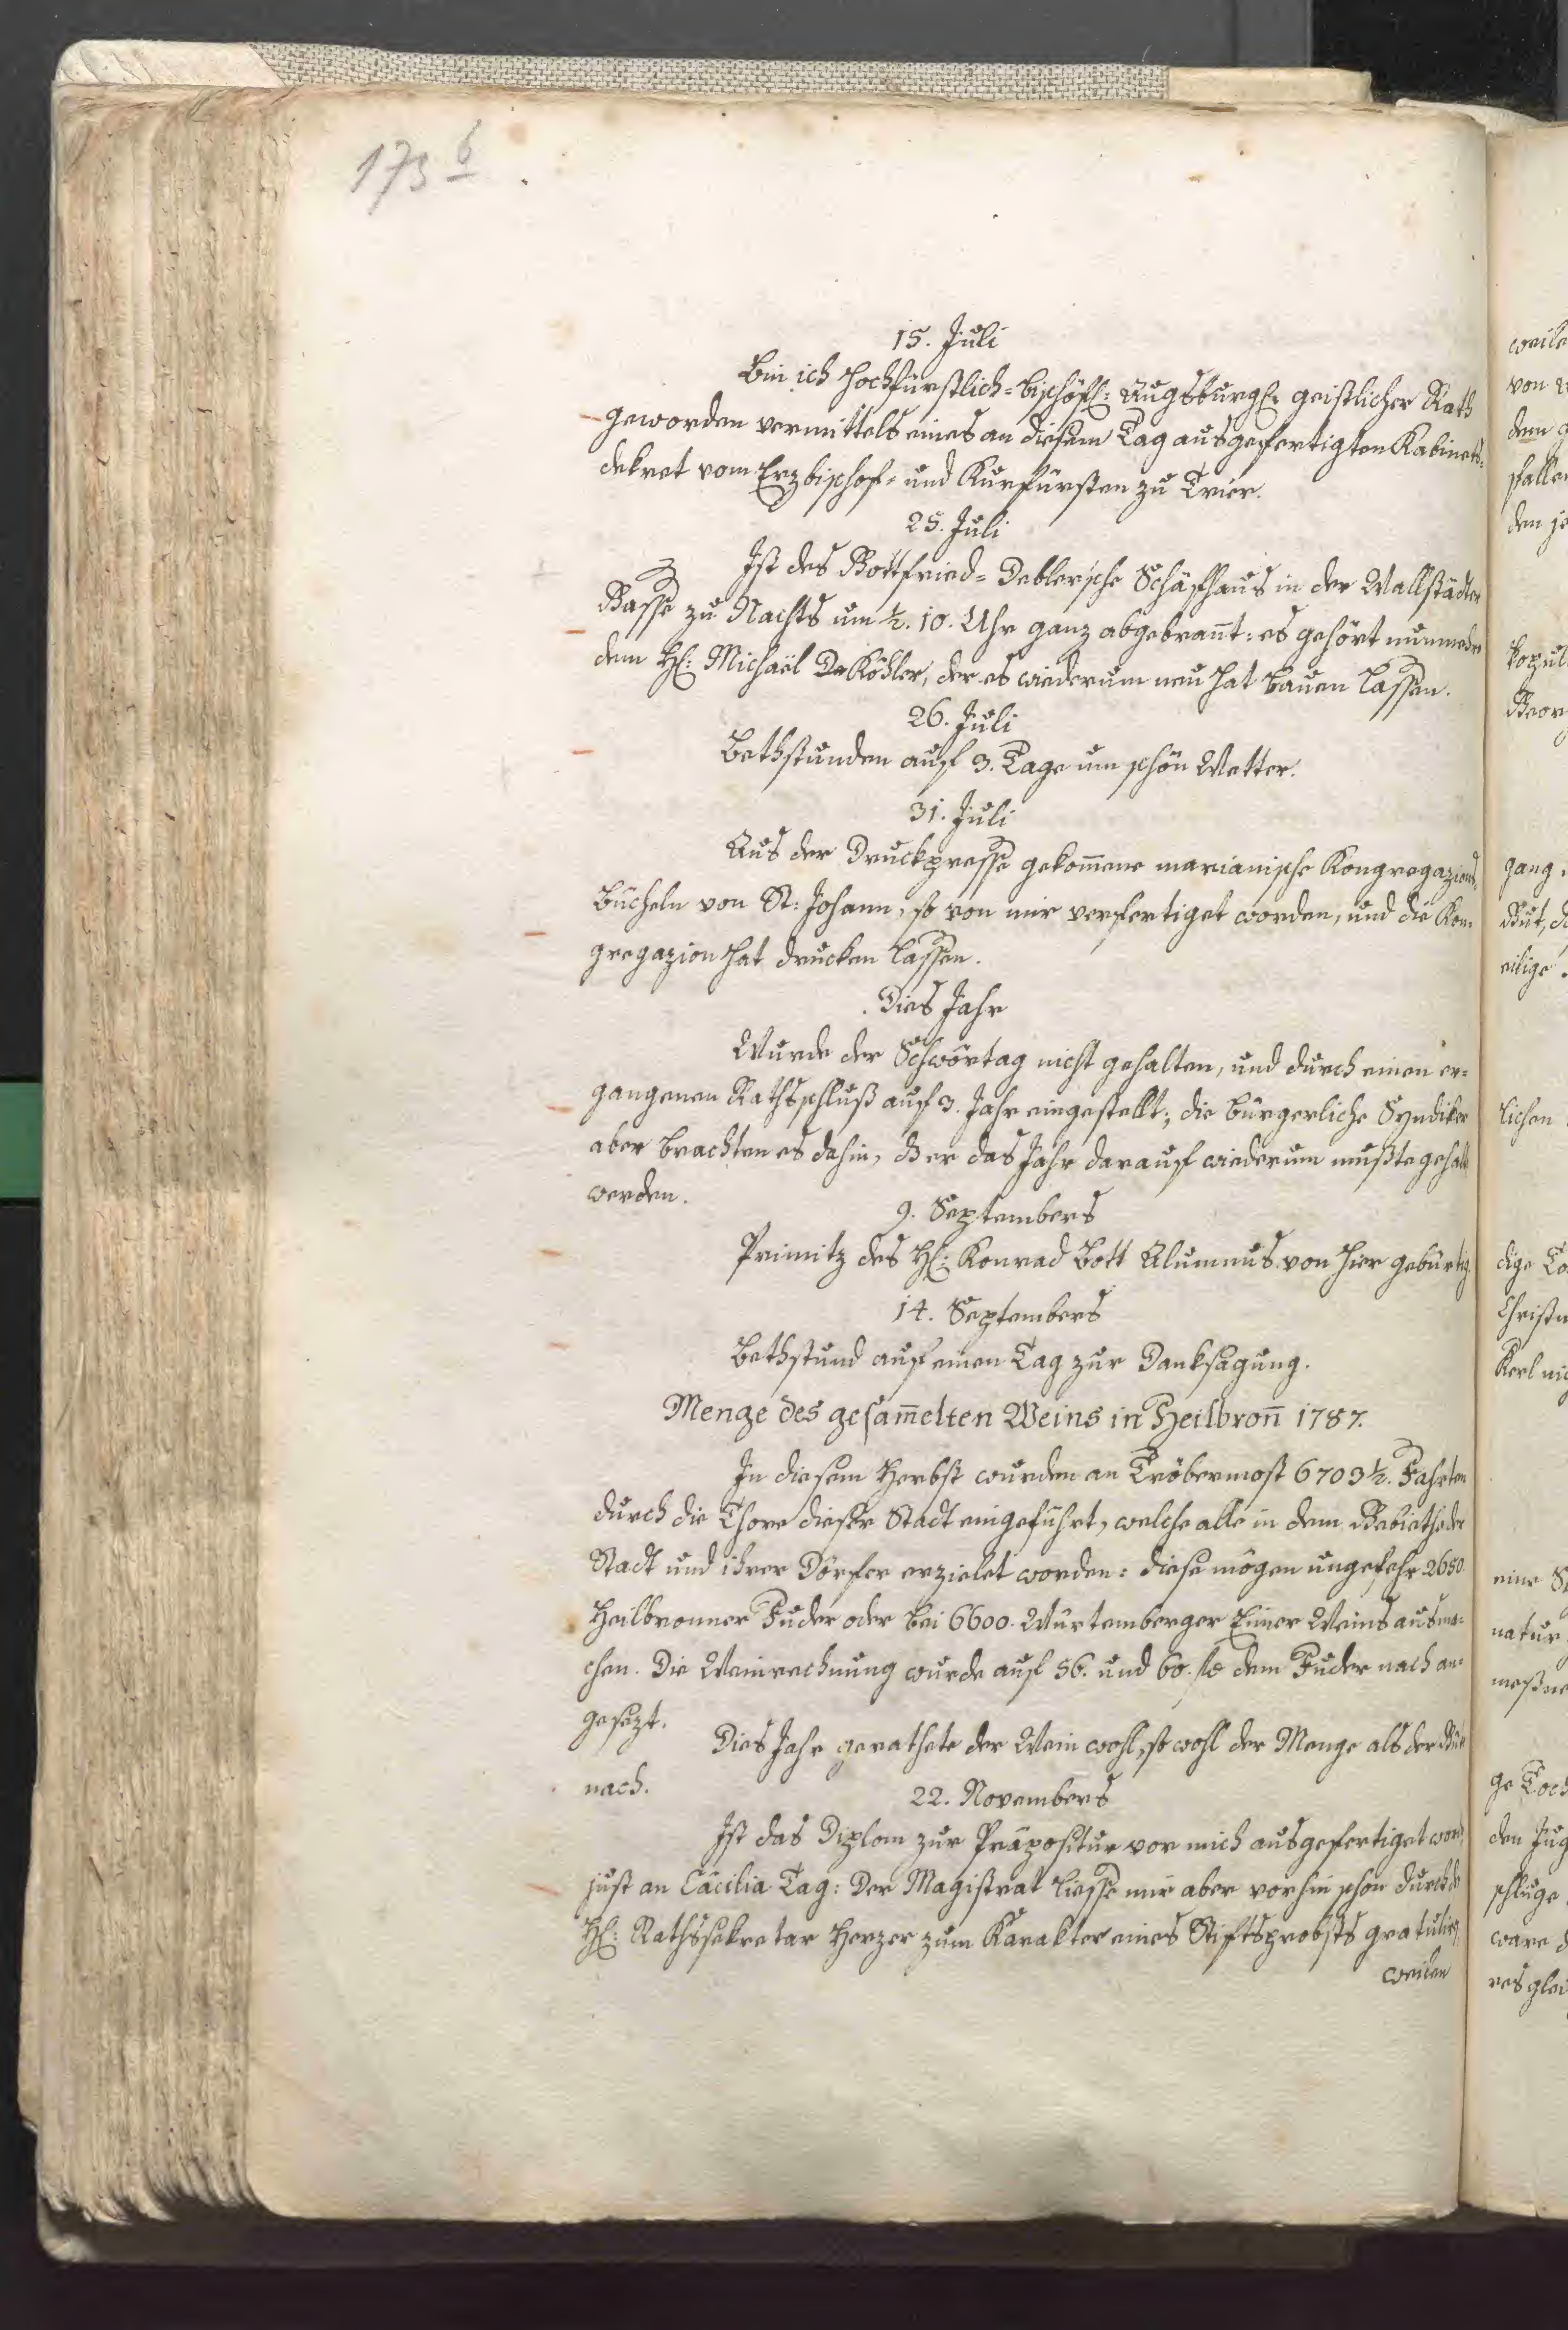 173 b
15. Juli
Bin ich Hochfürstlich-bischöfl: Augsburgl: geistlicher Rath
geworden vermittels eines an diesem Tag ausgefertigten Kabinets-
dekret vom Erzbischof- und Kurfürsten zu Trier.
25. Juli
Ist das Gottfried-Deblersche Schäfhaus in der Wallstädter
Gasse zu Nachts um ½. 10. Uhr ganz abgebrannt: es gehört nunmehr
dem H: Michaël Köhler, der es wiederum neu hat bauen lassen.
26. Juli
Bethstunden auf 3. Tage um schön Wetter.
31. Juli
Aus der Druckpresse gekom̄ene marianische Kongregazions-
Bücheln von St: Johann, so von mir verfertiget worden, und die Kon-
gregazion hat drucken lassen.
Dies Jahr
Wurde der Schwörtag nicht gehalten, und durch einen er-
gangenen Rathsschluß auf 3. Jahr eingestellt; die bürgerliche Syndiker
aber brachten es dahin, dß er das Jahr darauf wiederum mußte gehalt
werden.
9. Septembers
Primitz des H: Konrad Bott Alumnus von hier gebürtig
14. Septembers
Bethstund auf einen Tag zur Danksagung.
Menge des gesam̄elten Weins in Heilbron̄ 1787.
In diesem Herbst wurden an Tröbermost 6703½. Fahrten
durch die Thore dieser Stadt eingeführt, welche alle in dem Gebiethe der
Stadt und ihrer Dörfer erzielet worden: diese mögen ungefehr 2650
Heilbronner Fuder oder bei 6600. Würtemberger Eimer Weins ausma-
chen. Die Weinrechnung wurde auf 56. und 60. fl. dem Fuder nach an-
gesezt.
Dies Jahr gerathete der Wein wohl, so wohl der Menge als der Güt
nach.
22. Novembers
Ist das Diplom zur Präpositur vor mich ausgefertiget word
just an Cäcilia Tag: Der Magistrat liesse mir aber vorhin schon durch d
H: Rathssekretar Herzer zum Karakter eines Stiftsprobsts gratulir,
weilen